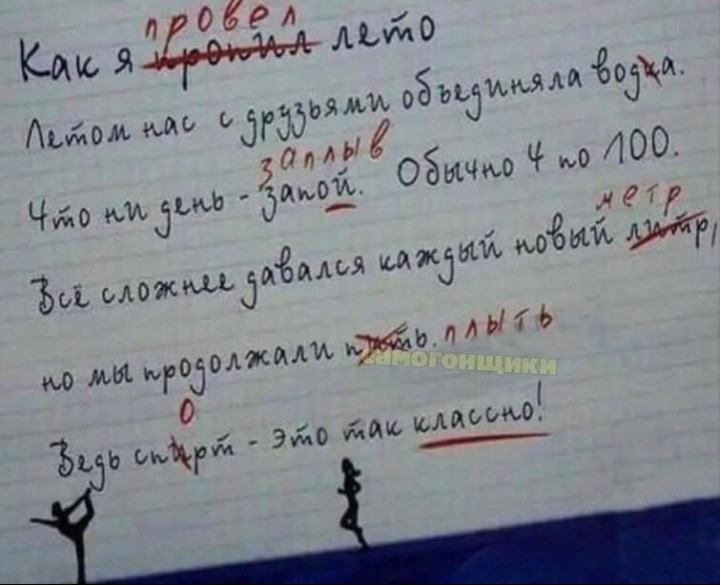 провел
Как я пропил лето
Летом нас с друзьями объединяла водка.
заплыв
Что ни день - запой. Обычно 4 по 100.
метр
Всё сложнее давался каждый новый литр,
но мы продолжали пить. плыть
самогонщики
о
Ведь спирт - это так классно!